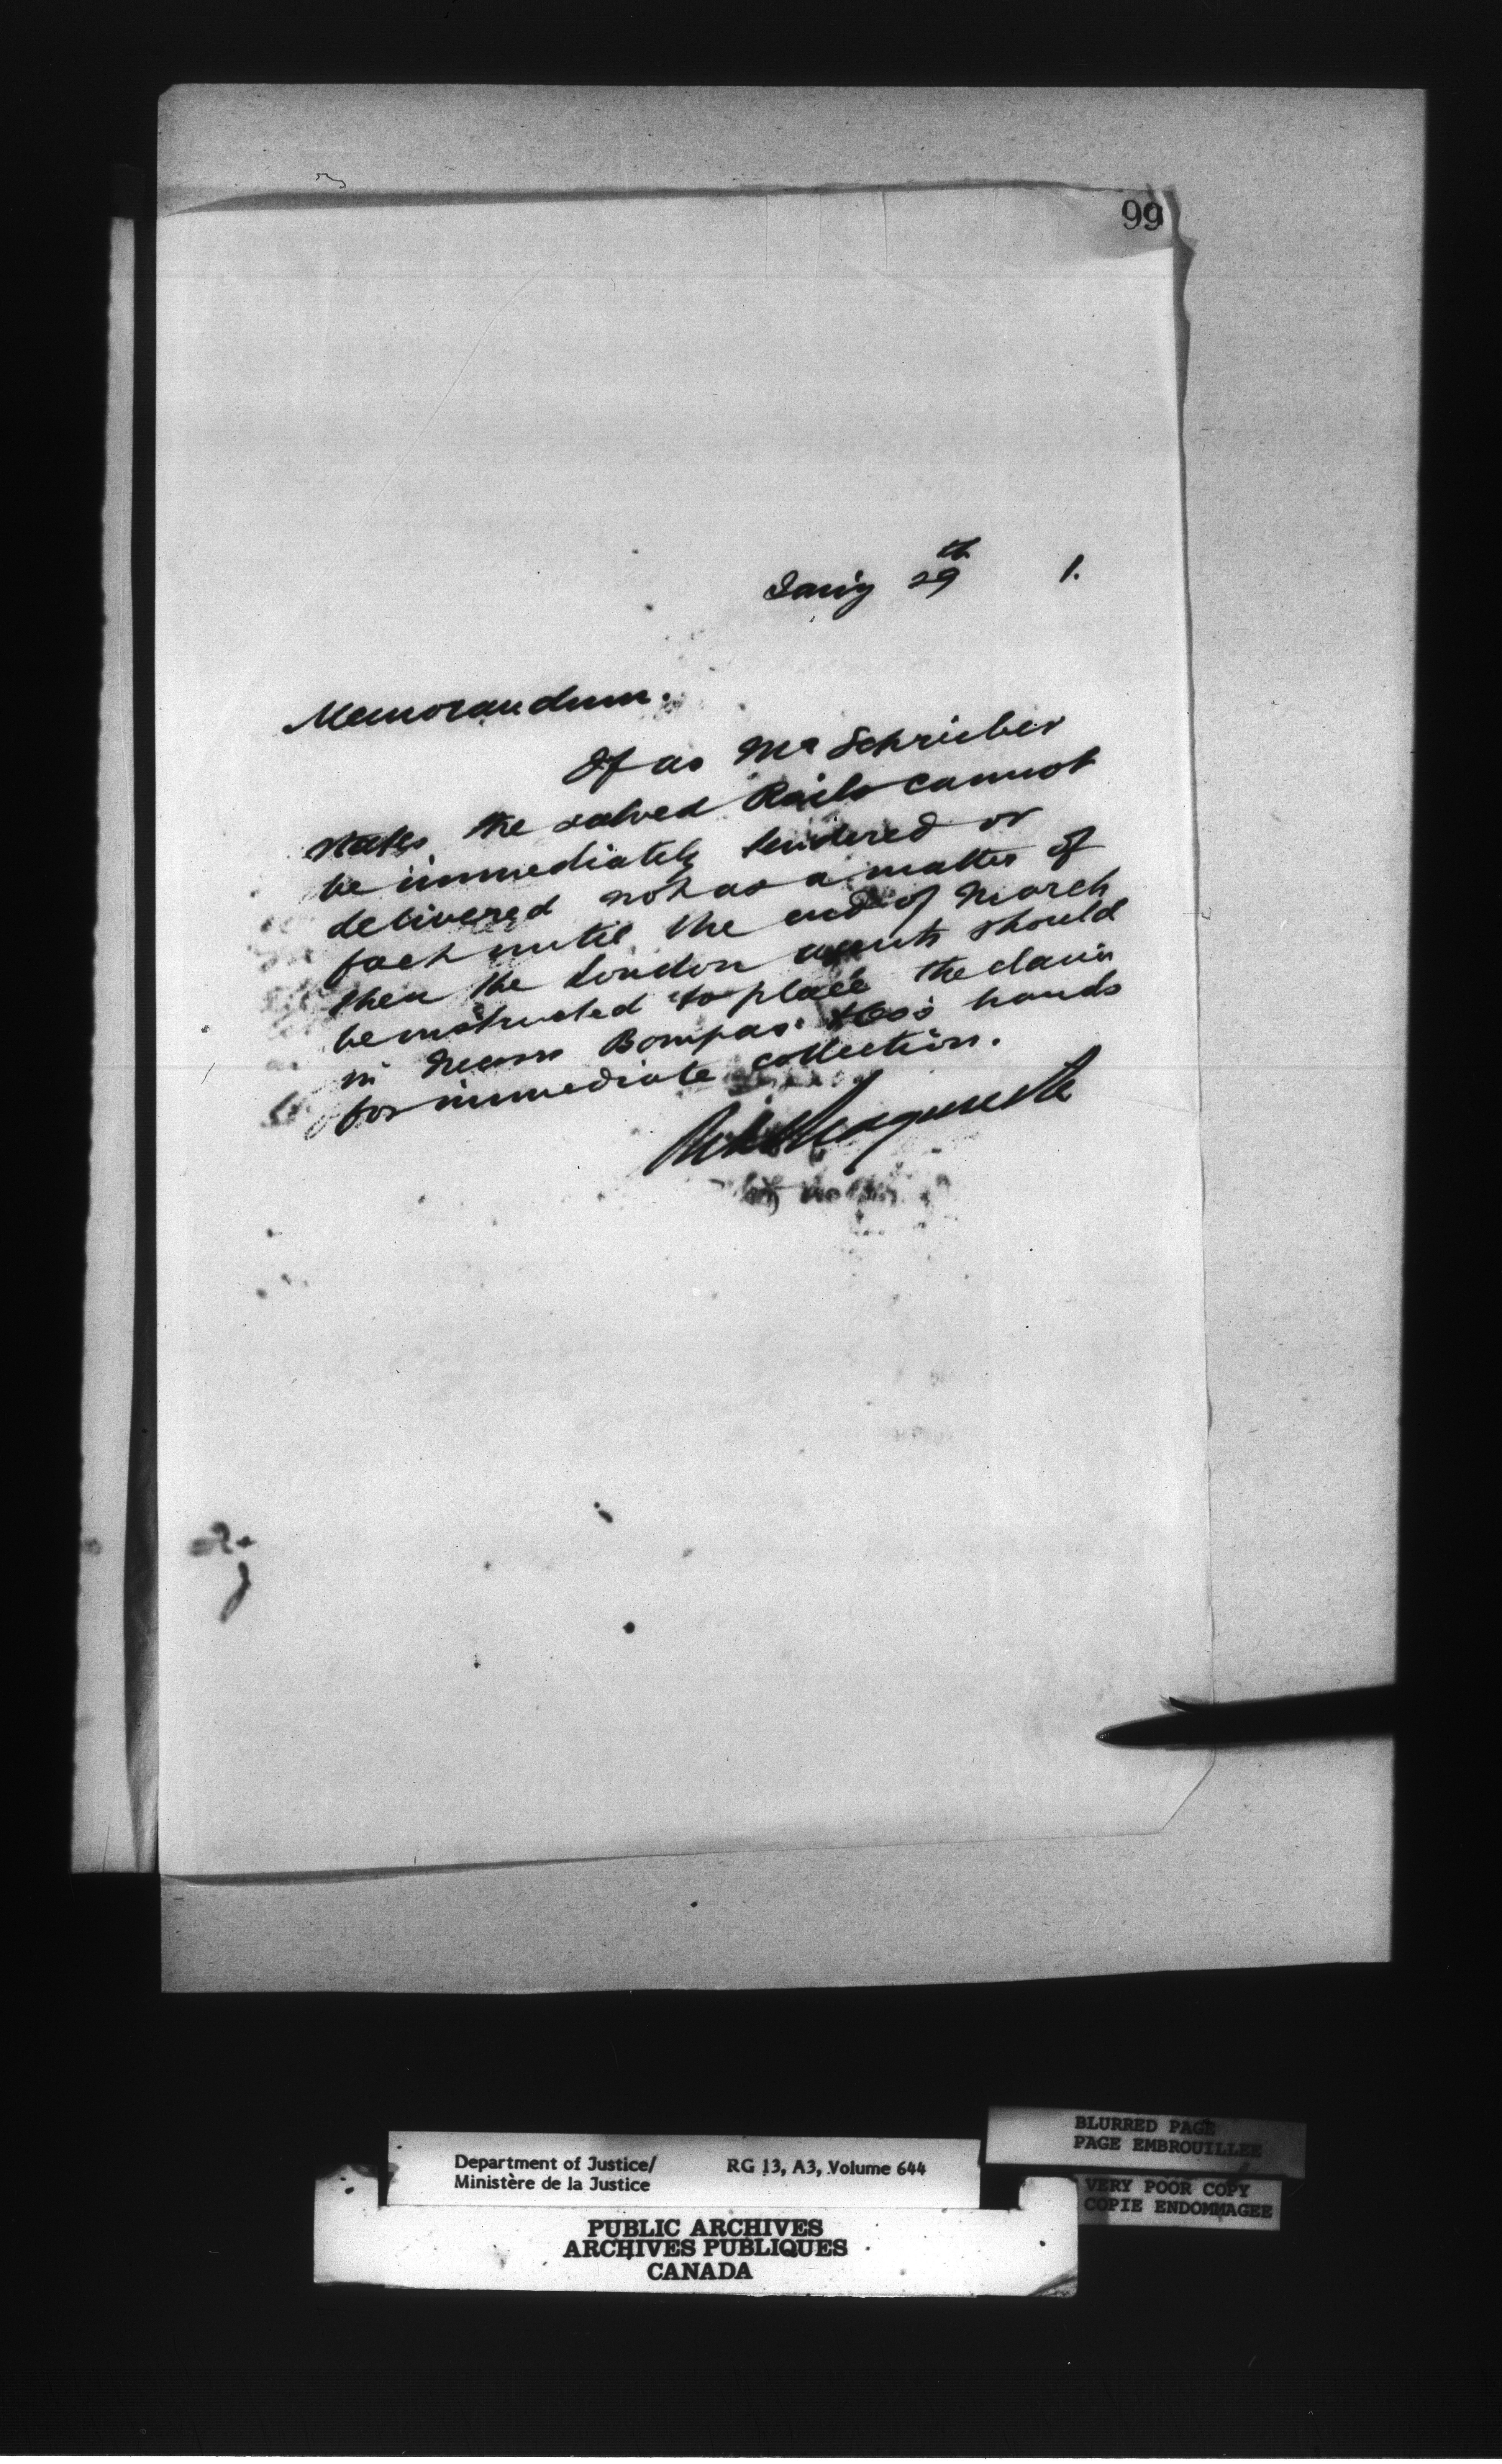 99
Jany 29th 1.
Memorandum.
If as Mr Schrieber
states the salved Rails cannot
be immediately tendered or
delivered not as a matter of
fact until the end of March
then the London agents should
be instructed to place the claim
in Messrs Bompas &Co's hands
for immediate collection.
Department of Justice/
Ministère de la Justice
RG 13, A3, Volume 644
BLURRED PAGE
PAGE EMBROUILLEE
VERY POOR COPY
COPIE ENDOMMAGEE
PUBLIC ARCHIVES
ARCHIVES PUBLIQUES
CANADA